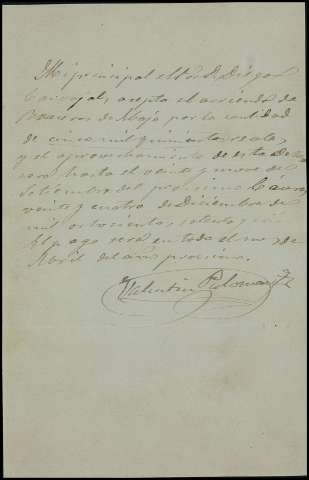 Mi principal el Sr. D. Diego
Carvajal, acepta el arriendo de
de Abajo por la cantidad
de cinco mil quinientos reales,
y el aprovechamiento de esta
sera hasta el veinte y nueve de
Setiembre del procsimo
veinte y cuatro de Diciembre de
mil ochocientos setenta y
El pago será en todo el mes de
Abril del año procsimo.
Valentin Palomar